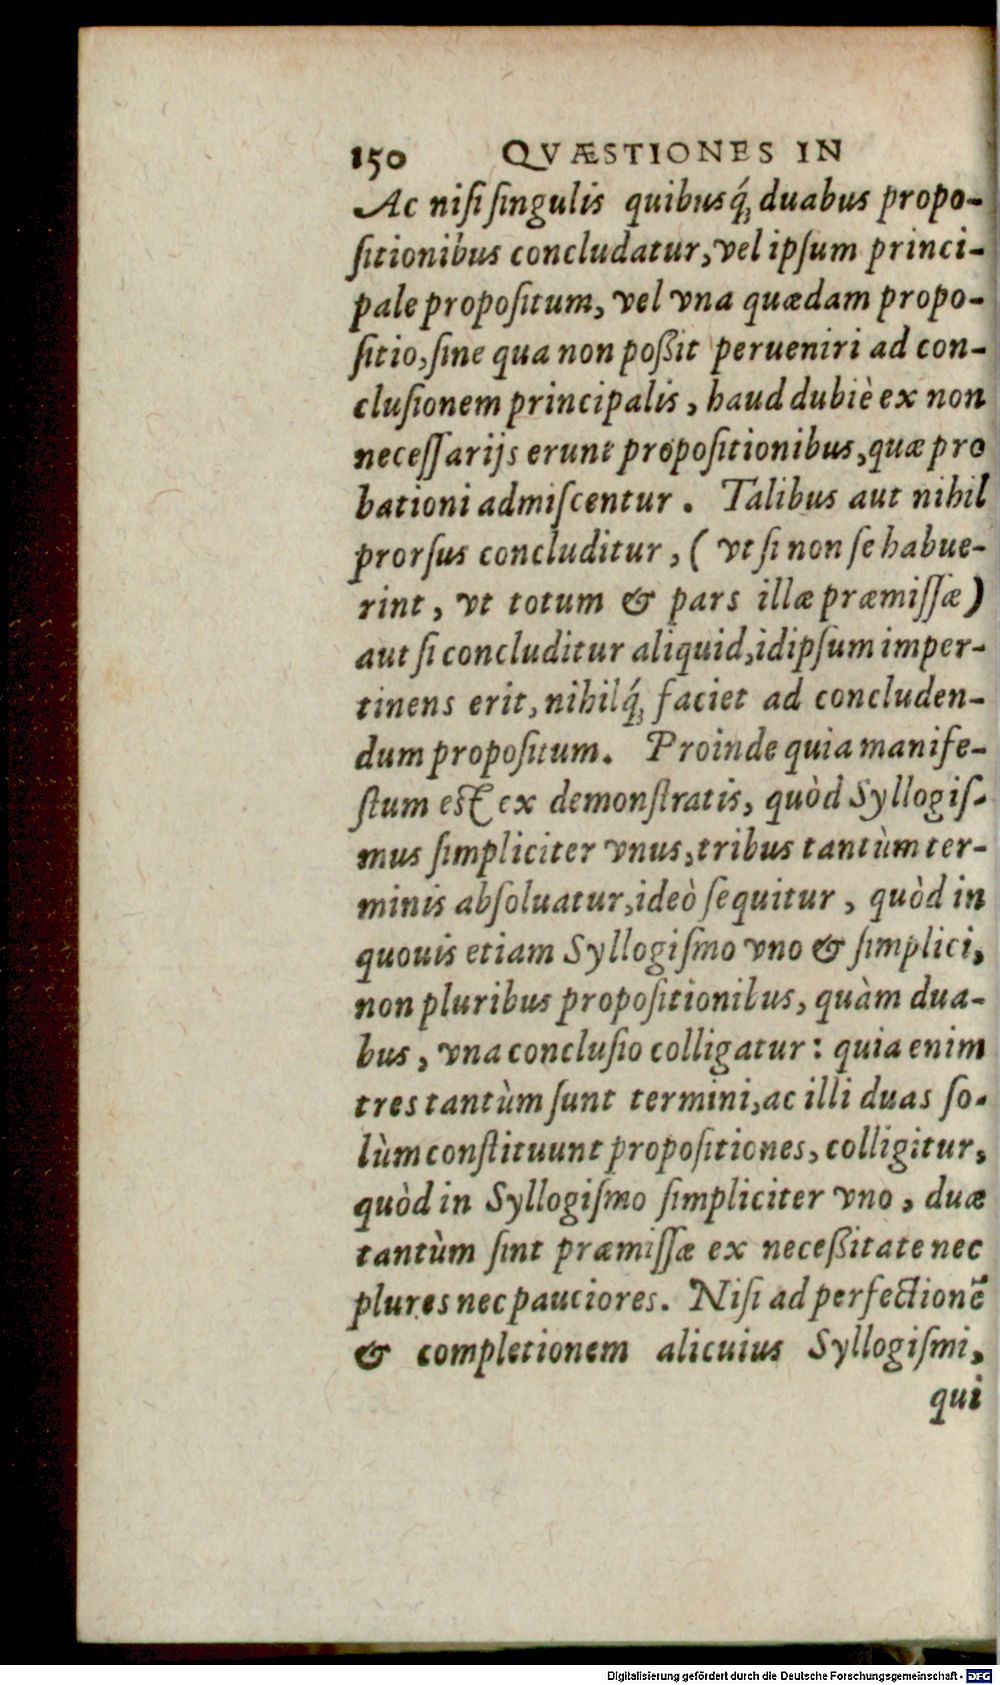 150 QVÆSTIONES IN
Ac niſi ſingulis quibusq́; duabus propo-
ſitionibus concludatur, vel ipſum princi-
pale propoſitum, vel vna quædam propo-
ſitio, ſine qua non poßit perueniri ad con-
cluſionem principalis, haud dubiè ex non
neceſſarijs erunt propoſitionibus, quæ pro
bationi admiſcentur. Talibus aut nihil
prorſus concluditur, (vt ſi non ſe habue-
rint, vt totum & pars illæ præmiſſæ)
aut ſi concluditur aliquid, idipſum imper-
tinens erit, nihilq́; faciet ad concluden-
dum propoſitum. Proinde quia manife-
ſtum eſt ex demonſtratis, quòd Syllogiſ-
mus ſimpliciter vnus, tribus tantùm ter-
minis abſoluatur, ideò ſequitur, quòd in
quouis etiam Syllogiſmo vno & ſimplici,
non pluribus propoſitionibus, quàm dua-
bus, vna concluſio colligatur: quia enim
tres tantùm ſunt termini, ac illi duas ſo-
lùm conſtituunt propoſitiones, colligitur,
quòd in Syllogiſmo ſimpliciter vno, duæ
tantùm ſint præmiſſæ ex neceßitate nec
plures nec pauciores. Niſi ad perfectionē
& completionem alicuius Syllogiſmi,
qui
Digitalisierung gefördert durch die Deutsche Forschungsgemeinschaft - DFG